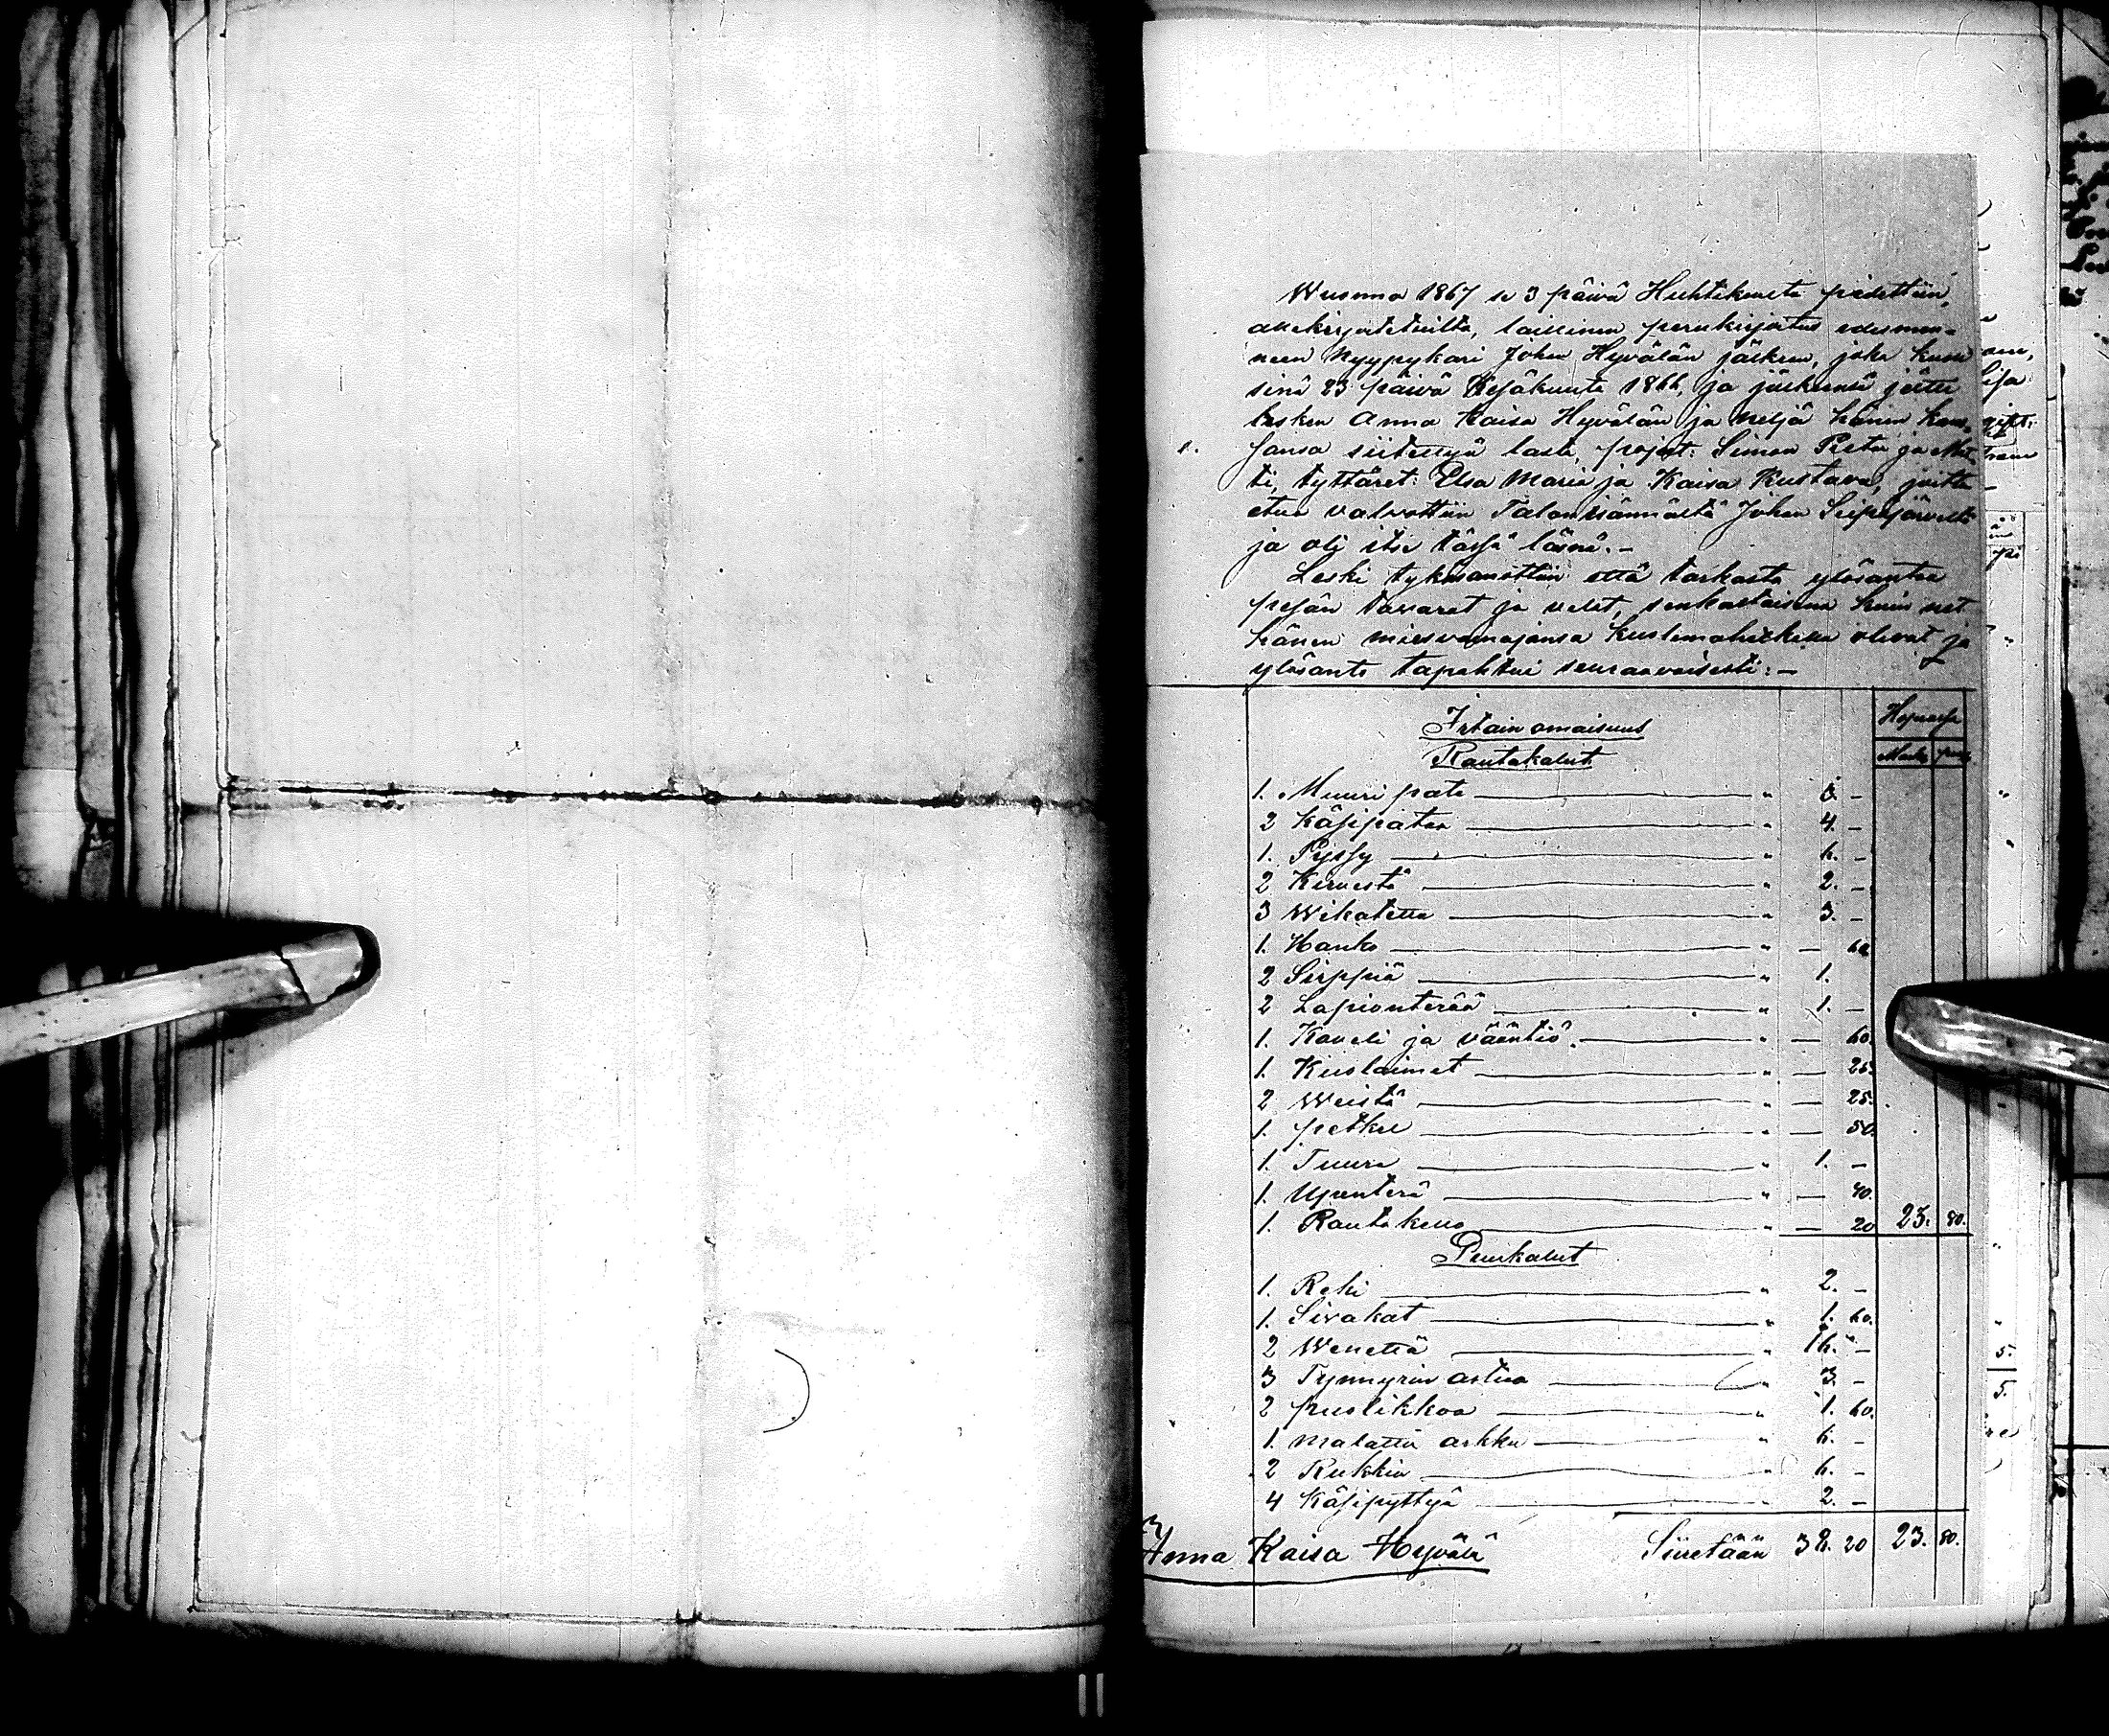 Wuonna 1867 se 3 päivä Huhtikuuta pidettiin,
allekirjoitetuilta, laillinen perukirjoitus edesmen-
neen Nyypykari Johan Hyvälän jälkeen, joka kuoli
sinä 23 päivä Kesäkuuta 1866, ja jälkeensä jätti
lesken Anna Kaisa Hyvälän ja neljä hänen kans-
1. sansa siitettyä lasta, pojat: Simon Pietu ja Mat-
ti, tyttäret: Elsa Maria ja Kaisa Kustava, joitten
etua valvottiin Talon isännältä Johan
ja oli itse tässä läsnä. -
Leski tykösanottiin että tarkasta ylösantaa
pesän tavarat ja velat, senkaltaisena kuin net
hänen miesvainajansa kuolemahetkenä olivat ja
ylösanto tapahtui seuraavaisesti: -
Irtain omaisuus Hopeassa
Rautakalut Markk. pen.
1. Muuri pata " 3. -
2 Käsipataa " 4. -
1. Pyssy " 6. -
2 Kirvestä " 2. -
3 Wikatetta " 3. -
1. Hanko " - 60
2 Sirppiä " 1.
2 Lapionterää " 1. -
1. Kaveli ja vääntiö. " - 60.
1. Kuolaimet " - 25.
2 Weistä " - 25.
1. petkel " - 50.
1. Tuura " 1. -
1. Ujunterä " - 40.
1. Rauta keno " - 20 23. 80.
Puukalut
1. Reki " 2. -
1. Sivakat " 1. 60.
2 Wenettä " 16. -
3 Tynnyrin astiaa " 3. -
2 puolikkoa " 1. 60.
1. malattu arkku " 6. -
2 Rukkia " 6. -
4 Käsipyttyä 2. -
Anna Kaisa Hyvälä Siiretään 38. 20 23. 80.